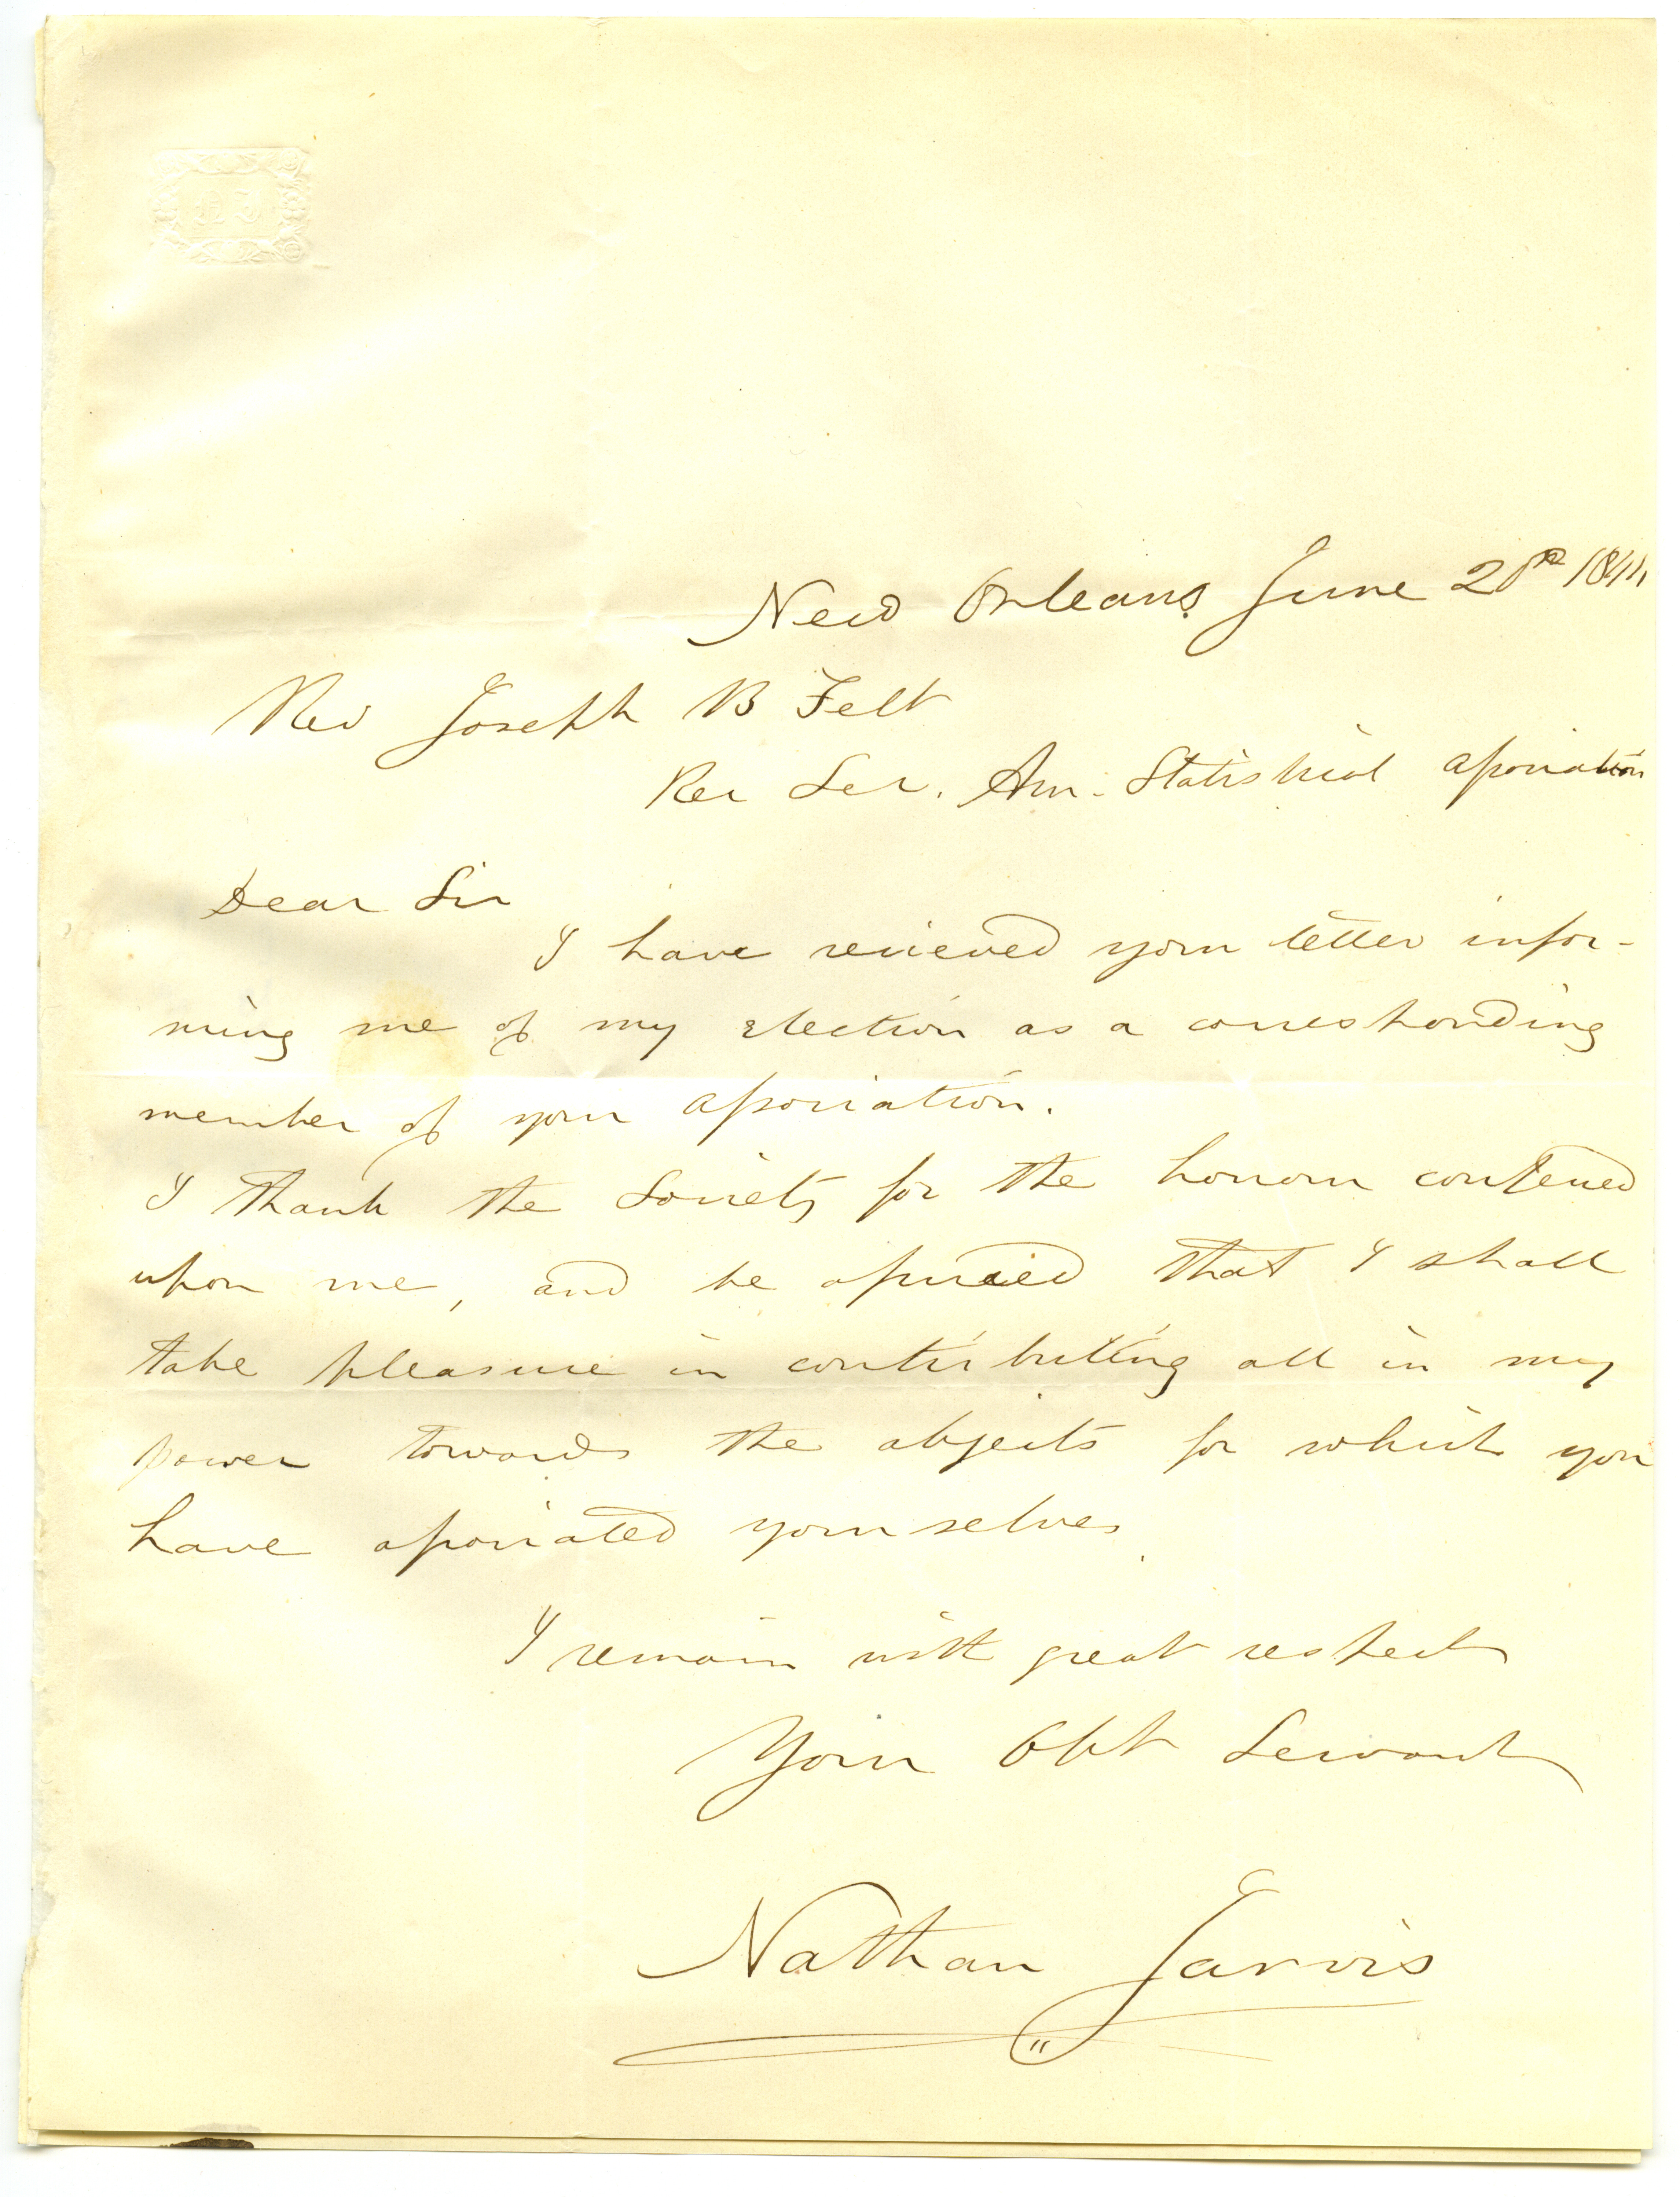 New Orleans June 20th 1844
Rev Joseph B Felt
Rec Sec. Am. Statistical Association
Dear Sir
I have recieved your letter infor-
ming me of my election as a corresponding
member of your Association.
I thank the Society for the honour conferred
upon me, and be assured that I shall
take pleasure in contributing all in my
power towards the objects for which you
have associated yourselves.
I remain with great respect
Your Obt Servant
Nathan Jarvis